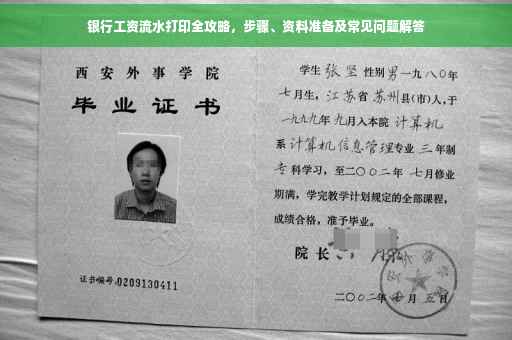 银行工资流水打印全攻略，步骤、资料准备及常见问题解答
西安外事学院
毕业证书
证书编号:0209130411
学生 张坚 性别 男 一九八〇年
七月生，江苏省 苏州县(市)人，于
一九九九年 九月入本院 计算机
系 计算机信息管理专业 三年制
专科学习，至二〇〇二年 七月修业
期满，学完教学计划规定的全部课程，
成绩合格，准予毕业。
院长
二〇〇二年 月 五日